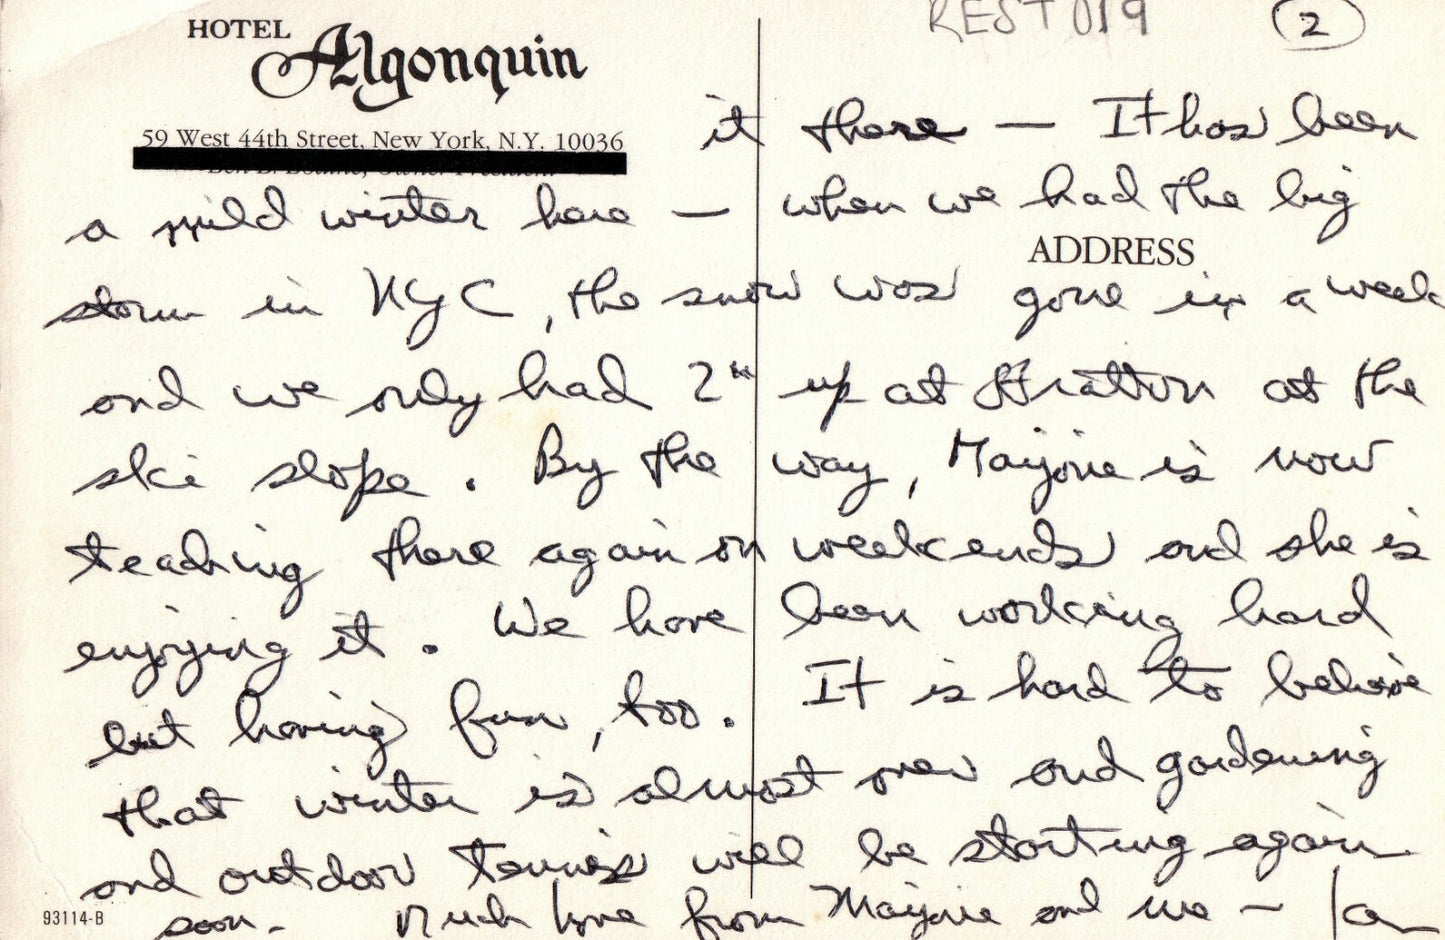 HOTEL
Algonquin
59 West 44th Street, New York, N.Y. 10036
REST 019
2
it there — It has been
a mild winter here — when we had the big
ADDRESS
storm in NYC, the snow was gone in a week
and we only had 2" up at Stratton at the
ski slope. By the way, Marjorie is now
teaching there again on weekends and she is
enjoying it. We have been working hard
but having fun, too. It is hard to believe
that winter is almost over and gardening
and outdoor tennis will be starting again
93114-B
soon. Much love from Marjorie and me —